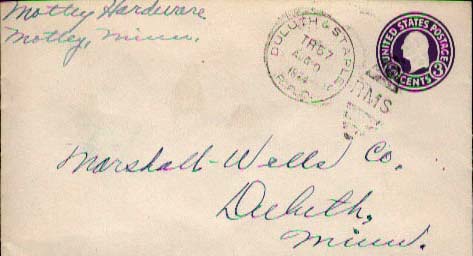 Motley Hardware
Motley, Minn.
DULUTH & STAPLES
TR 57
AUG
R.P.O.
RMS
UNITED STATES POSTAGE
3 CENTS 3
Marshall-Wells Co.
Duluth,
Minn.